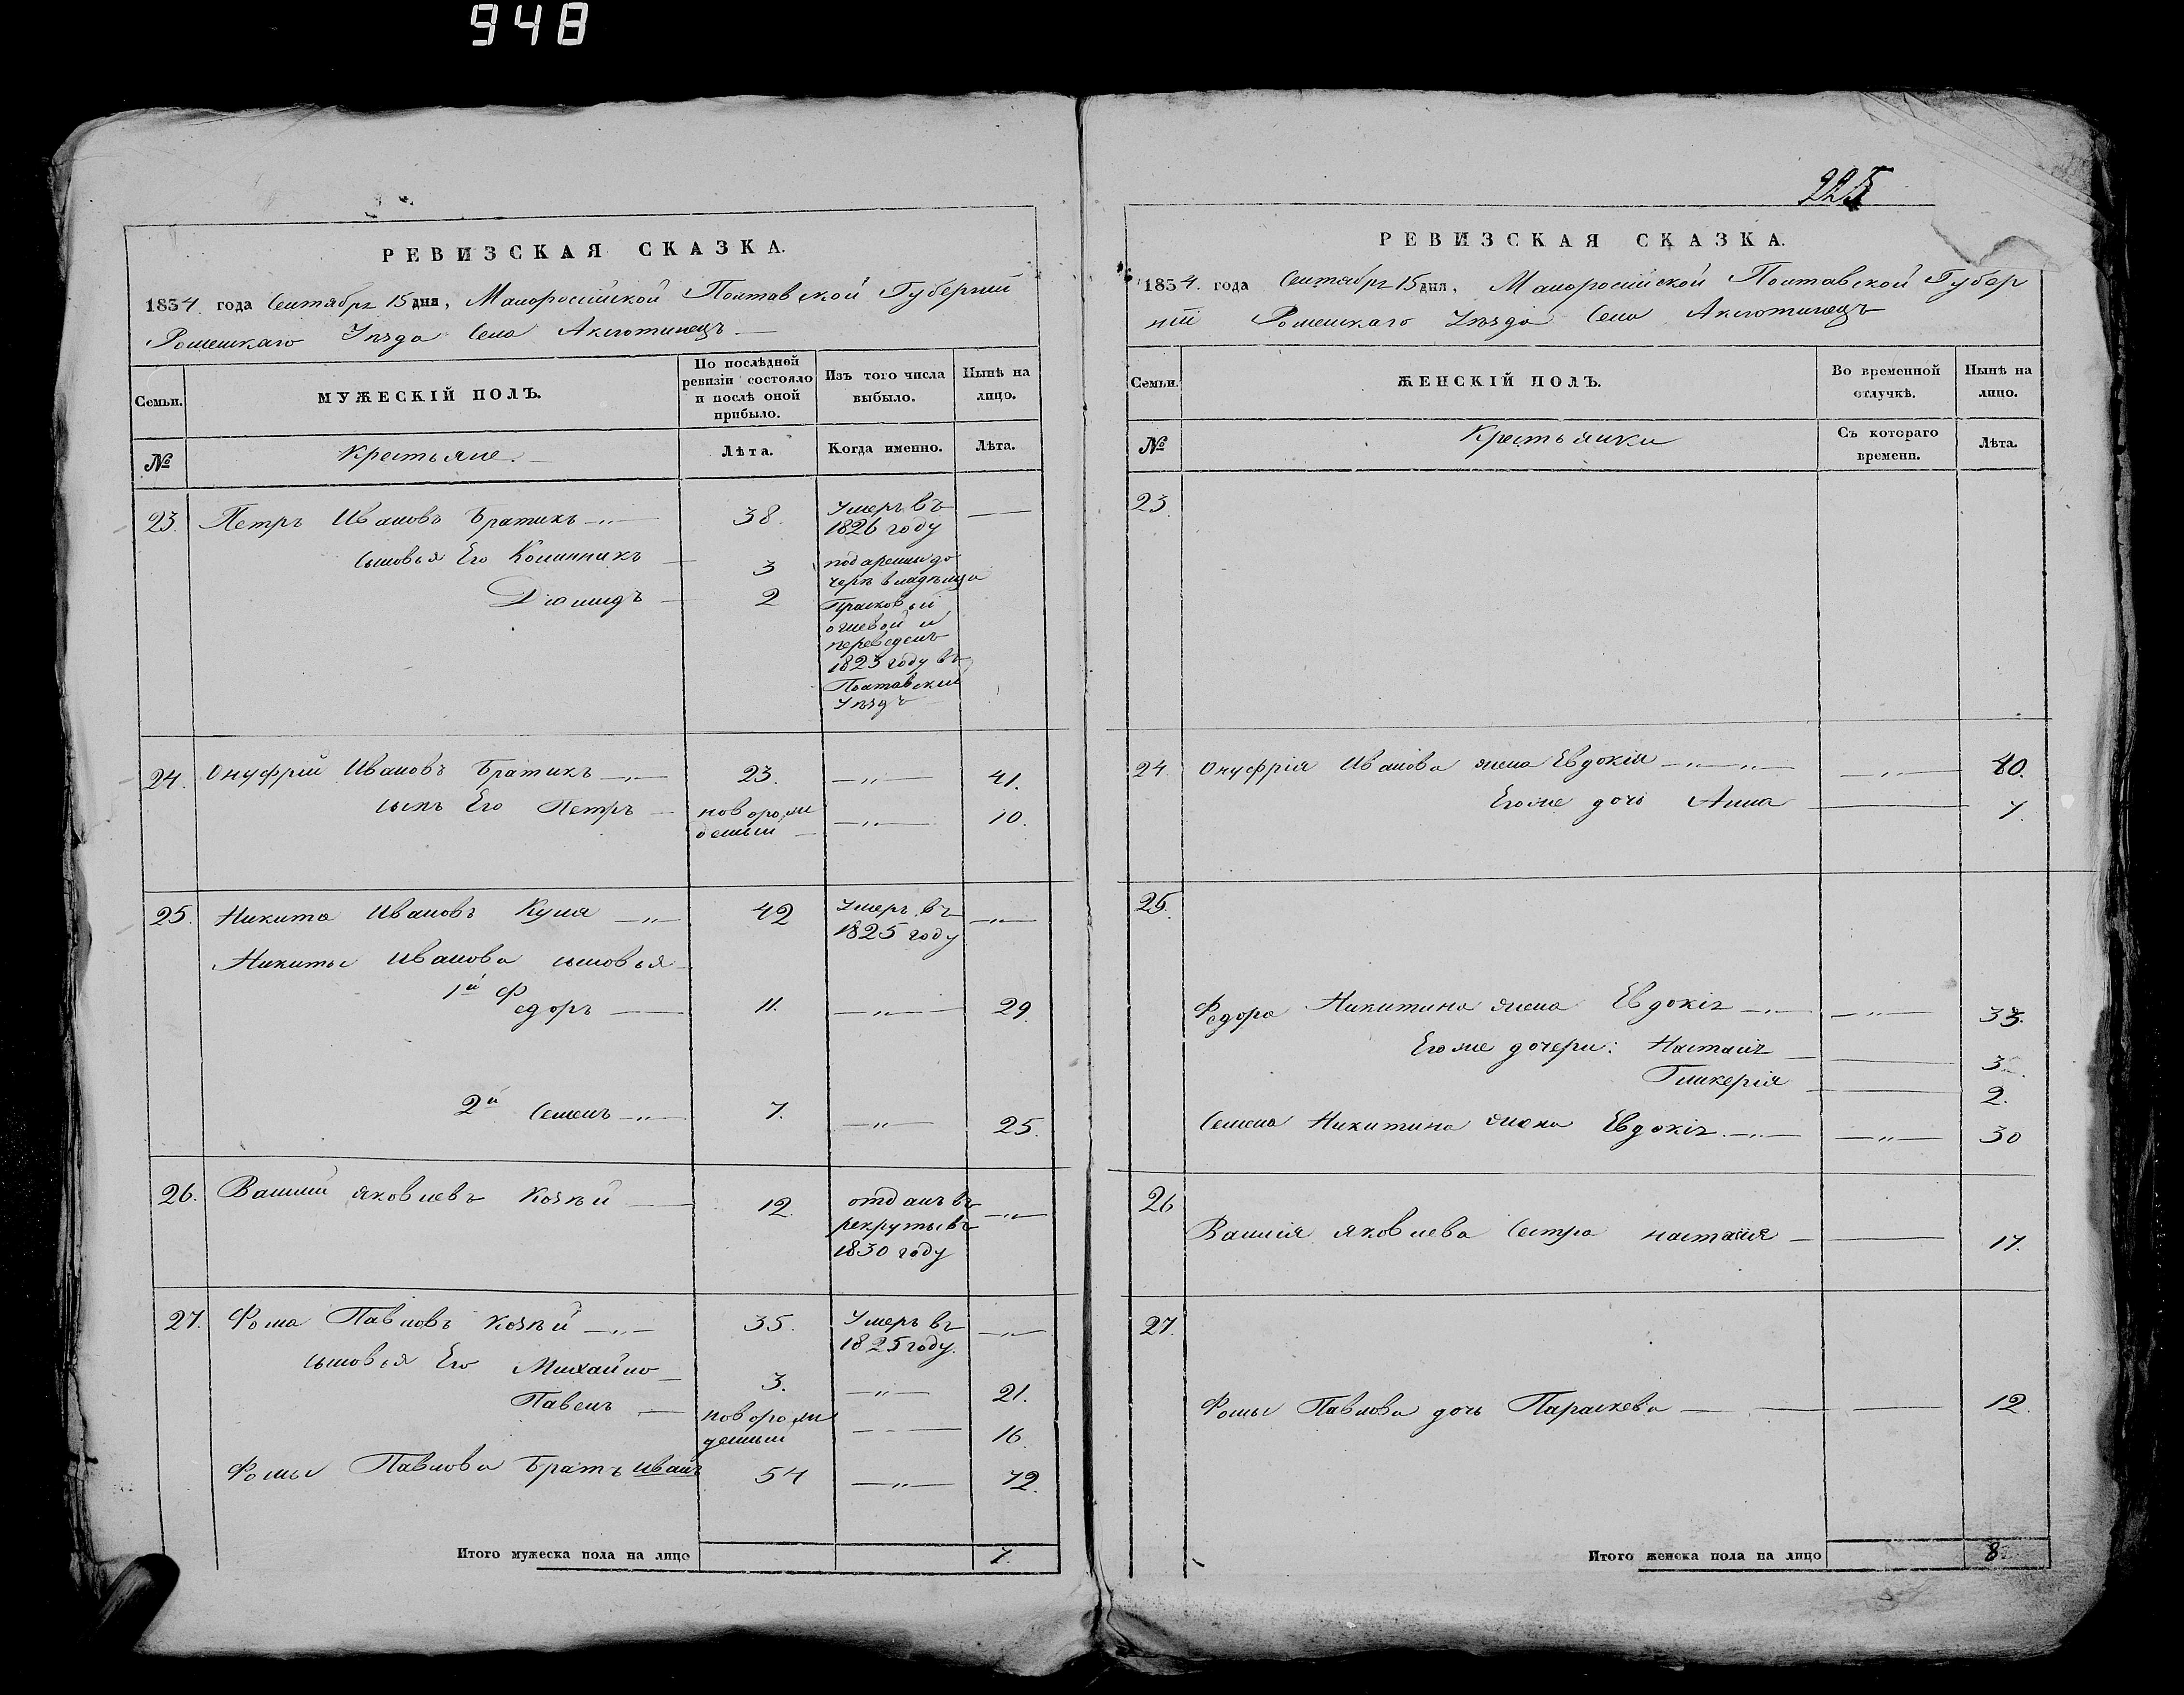 948
РЕВИЗСКАЯ СКАЗКА.
1834. года Сентября 15 дня, Малоросійской Полтавской Губерніи
Роменскаго Уѣзда Села Аксютинецъ
Семьи.
МУЖЕСКІЙ ПОЛЪ.
По послѣдней ревизіи состояло и послѣ оной прибыло.
Изъ того числа выбыло.
Нынѣ на лицо.
№
Крестьяне.
Лѣта.
Когда именно.
Лѣта.
23. Петръ Ивановъ Братикъ 38. Умеръ въ
1826 году
сыновья Его Калинникъ 3 подарены до
черѣ владѣлца
Діомидъ 2 Прасковьи
и
переведенъ
1823 году въ
Полтавский
Уѣздъ
24. Онуфрій Ивановъ Братикъ 23. 41.
сынъ Его Петръ новорож
денный 10.
25. Никита Ивановъ Куля 42 Умеръ въ
1825 году
Никиты Иванова сыновья
1й Федоръ 11. 29.
2й Семенъ 7. 25.
26. Василий Яковлевъ Козѣй 12. отданъ въ
рекруты въ
1830 году
27. Фома Павловъ Козѣй 35. Умеръ въ
1825 году.
сыновья Его Михайло 3. 21.
Павелъ новорож
денный 16.
Фомы Павлова Братъ Иванъ 54 72.
Итого мужеска пола на лицо 7.
РЕВИЗСКАЯ СКАЗКА.
1834. года Сентября 15 дня, Малоросійской Полтавской Губер
ніи Роменскаго Уѣзда Села Аксютинецъ
Семьи.
ЖЕНСКІЙ ПОЛЪ.
Во временной отлучкѣ.
Нынѣ на лицо.
№
Крестьянки
Съ котораго времени.
Лѣта.
23.
24 Онуфрія Иванова жена Евдокія 40.
Егоже дочь Анна 7.
25.
Федора Никитина жена Евдокія 33.
Егоже дочери: Настасія 3.
Гликерія 2.
Семена Никитина жена Евдокія 30
26
Василия Яковлева Сестра настасия 17.
27.
Фомы Павлова дочь Параскева 12.
Итого женска пола на лицо 8.